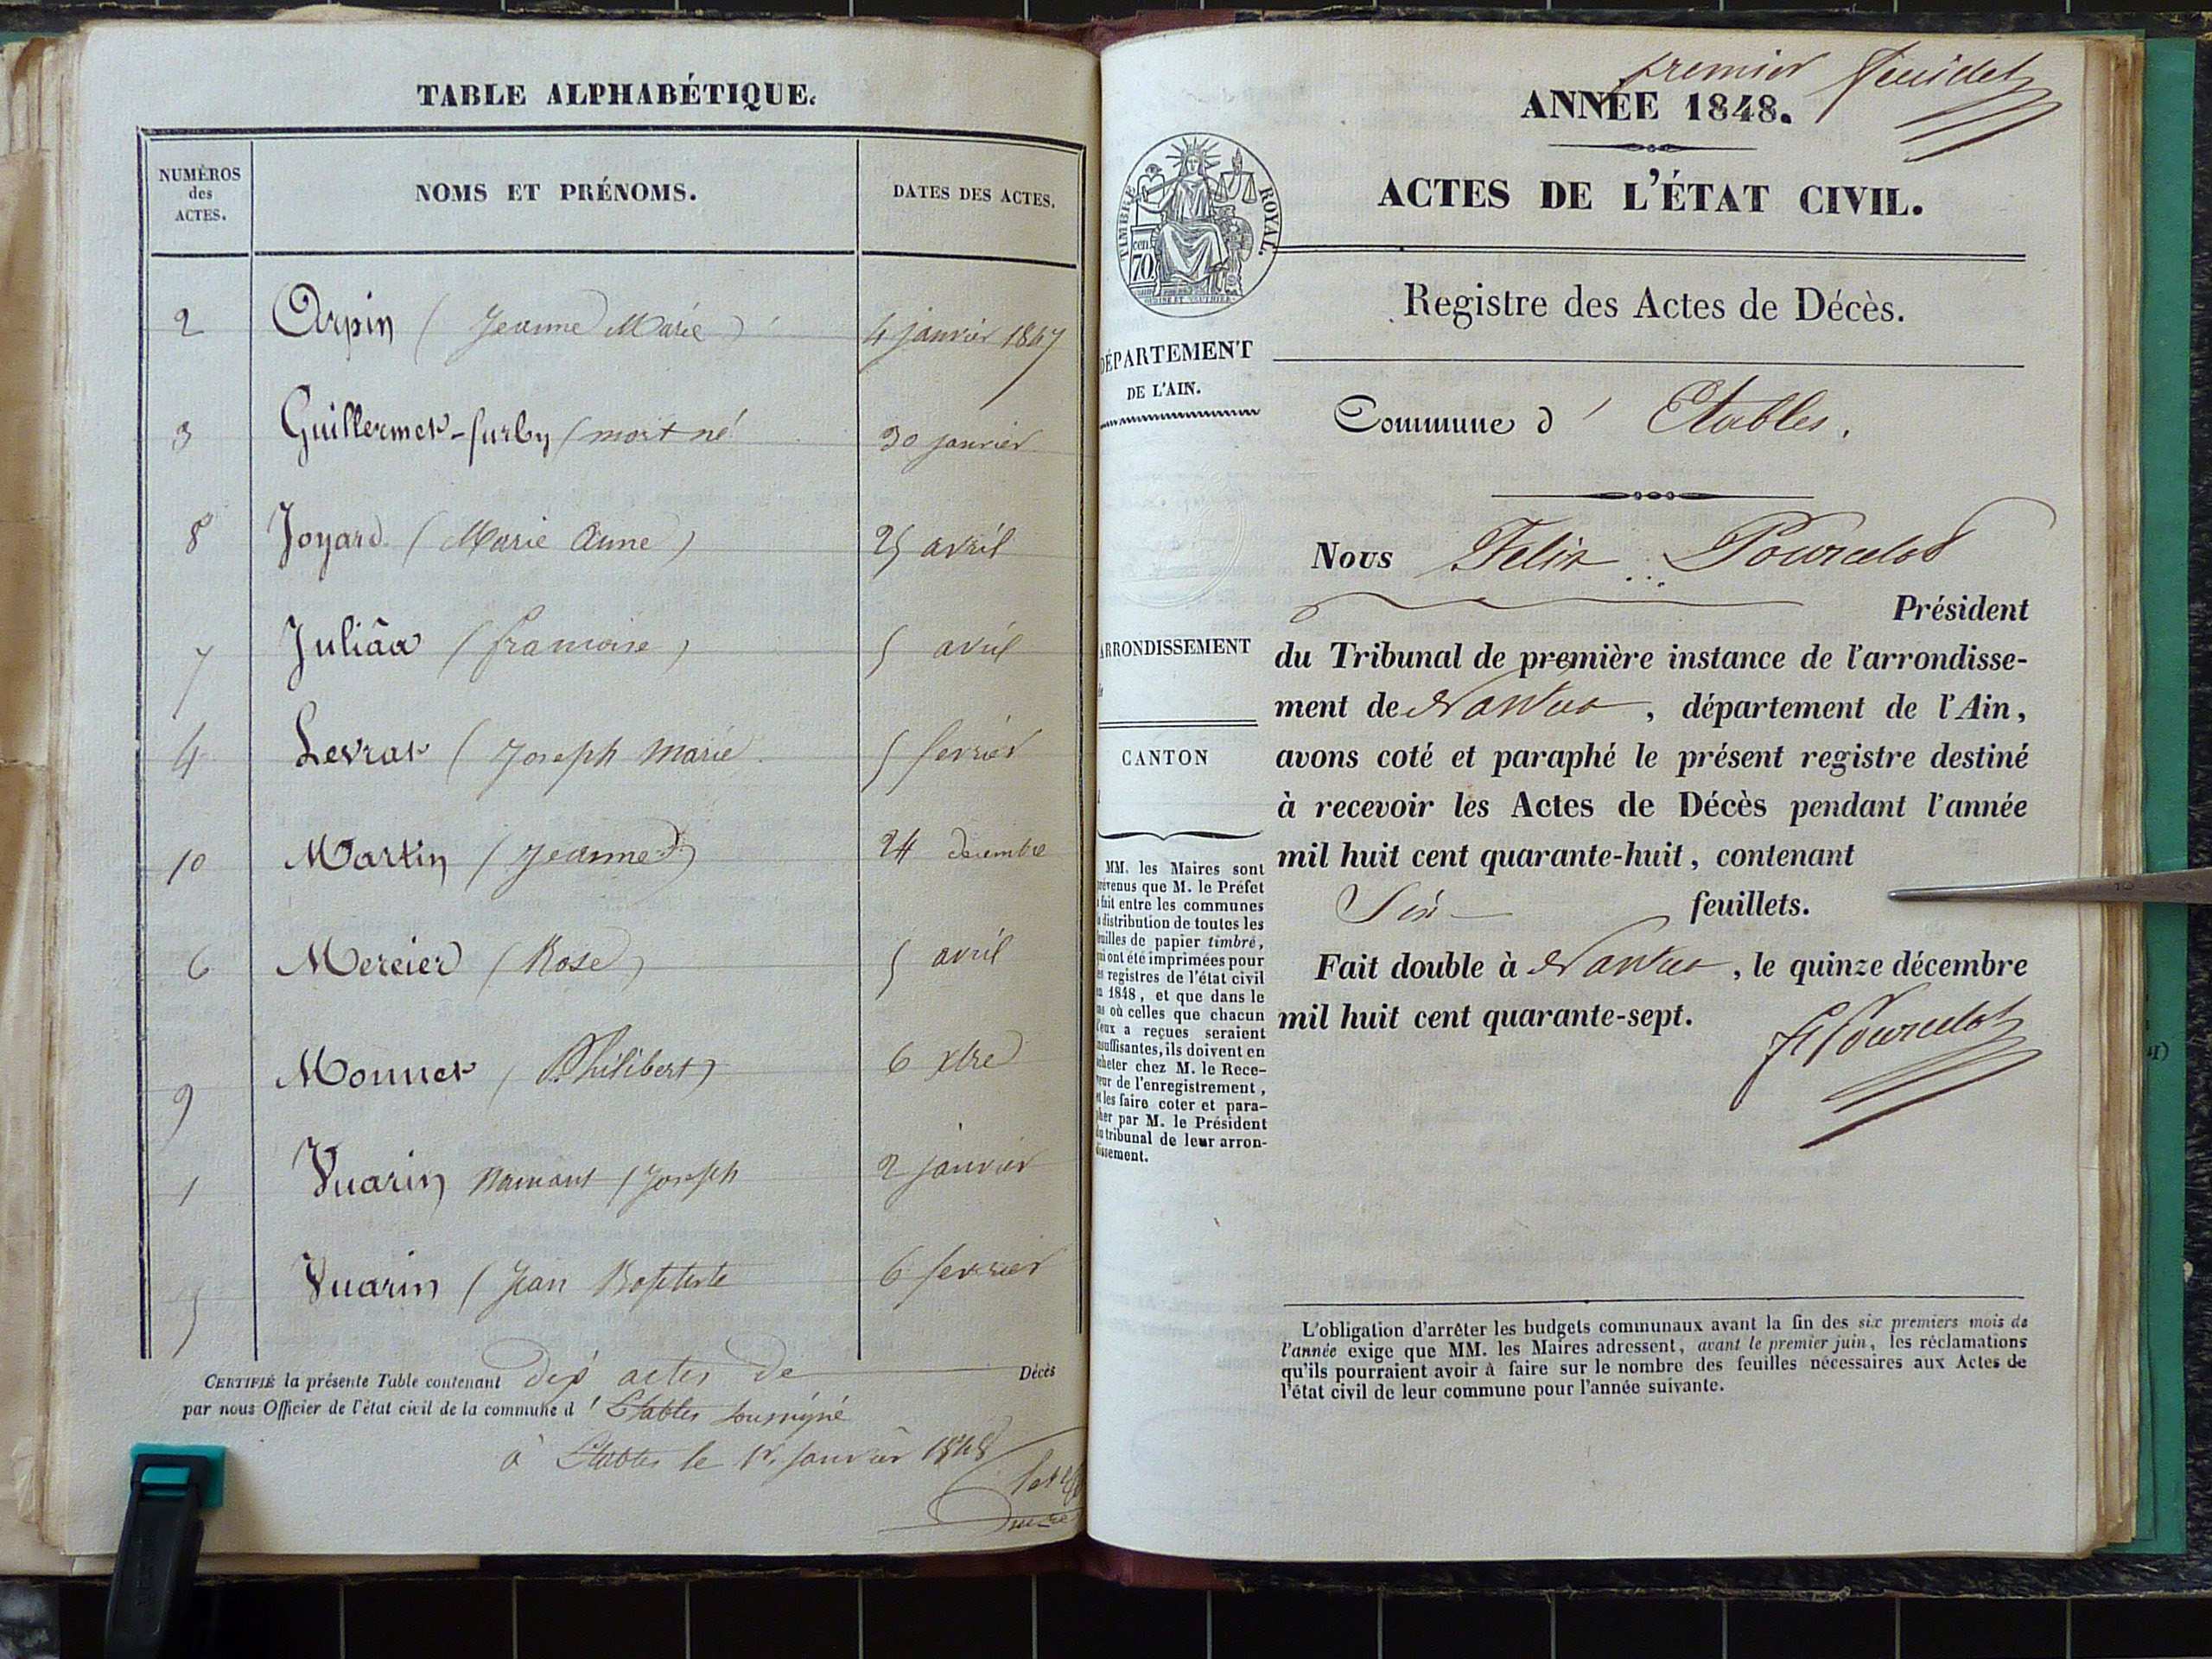 TABLE ALPHABÉTIQUE.
NUMÉROS
des
ACTES.
NOMS ET PRÉNOMS.
DATES DES ACTES.
2 Arpin (Jeanne Marie) 4 janvier 1847
3 Guillermet-furby (mort né 30 janvier
8 Joyard (Marie Anne) 25 avril
7 Juliâa (francoise) 5 avril
4 Levrat (Joseph Marie 5 fevrier
10 Martin (Jeanne) 24 decembre
6 Mercier (Rose) 5 avril
9 Monnet (Philibert) 6 xbre
1 Vuarin Namant (Joseph 2 janvier
5 Vuarin (Jean Baptiste 6 fevrier
CERTIFIÉ la présente Table contenant dix actes de Décès
par nous Officier de l'état civil de la commune d' Etables soussigné
à Etables le 1er janvier 1848
premier feuillet
ANNÉE 1848.
ACTES DE L'ÉTAT CIVIL.
TIMBRE ROYAL.
cen.
70
Registre des Actes de Décès.
DÉPARTEMENT
DE L'AIN.
Commune d' Etables.
Nous Felix Pourcelot
Président
ARRONDISSEMENT
du Tribunal de première instance de l'arrondisse-
ment de Nantua, département de l'Ain,
avons coté et paraphé le présent registre destiné
à recevoir les Actes de Décès pendant l'année
mil huit cent quarante-huit, contenant
Six feuillets.
Fait double à Nantua, le quinze décembre
mil huit cent quarante-sept.
F Pourcelot
CANTON
MM. les Maires sont
prévenus que M. le Préfet
a fait entre les communes
la distribution de toutes les
feuilles de papier timbré,
qui ont été imprimées pour
les registres de l'état civil
en 1848, et que dans le
cas où celles que chacun
d'eux a reçues seraient
insuffisantes, ils doivent en
acheter chez M. le Rece-
veur de l'enregistrement,
et les faire coter et para-
pher par M. le Président
du tribunal de leur arron-
dissement.
L'obligation d'arrêter les budgets communaux avant la fin des six premiers mois de
l'année exige que MM. les Maires adressent, avant le premier juin, les réclamations
qu'ils pourraient avoir à faire sur le nombre des feuilles nécessaires aux Actes de
l'état civil de leur commune pour l'année suivante.